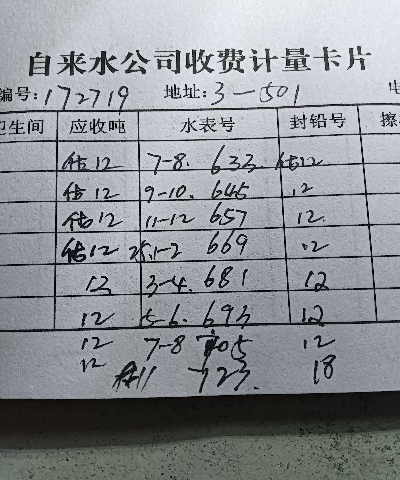 自来水公司收费计量卡片
编号:172719 地址:3-501 电
卫生间 应收吨 水表号 封铅号 擦
估12 7-8. 633 估12
估12 9-10. 645 12
估12 11-12 657 12.
估12 25.1-2 669 12
12 3-4. 681 12
12 5-6. 693 12
12 7-8 705 12
12 723. 18